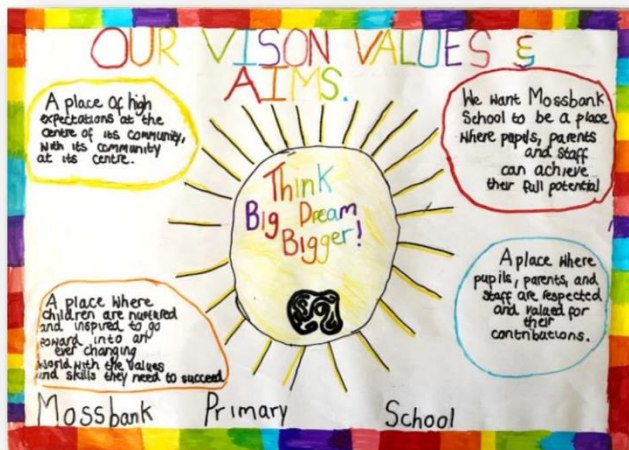 OUR VISON VALUES &
AIMS.
A place of high
expectations at the
centre of its community,
with its community
at its centre.
We want Mossbank
School to be a place
where pupils, parents
and staff
can achieve
their full potential
Think
Big Dream
Bigger!
A place where
children are nurtured
and inspired to go
forward into an
ever changing
world with the values
and skills they need to succeed
A place where
pupils, parents, and
staff are respected
and valued for
their
contributions.
Mossbank Primary School